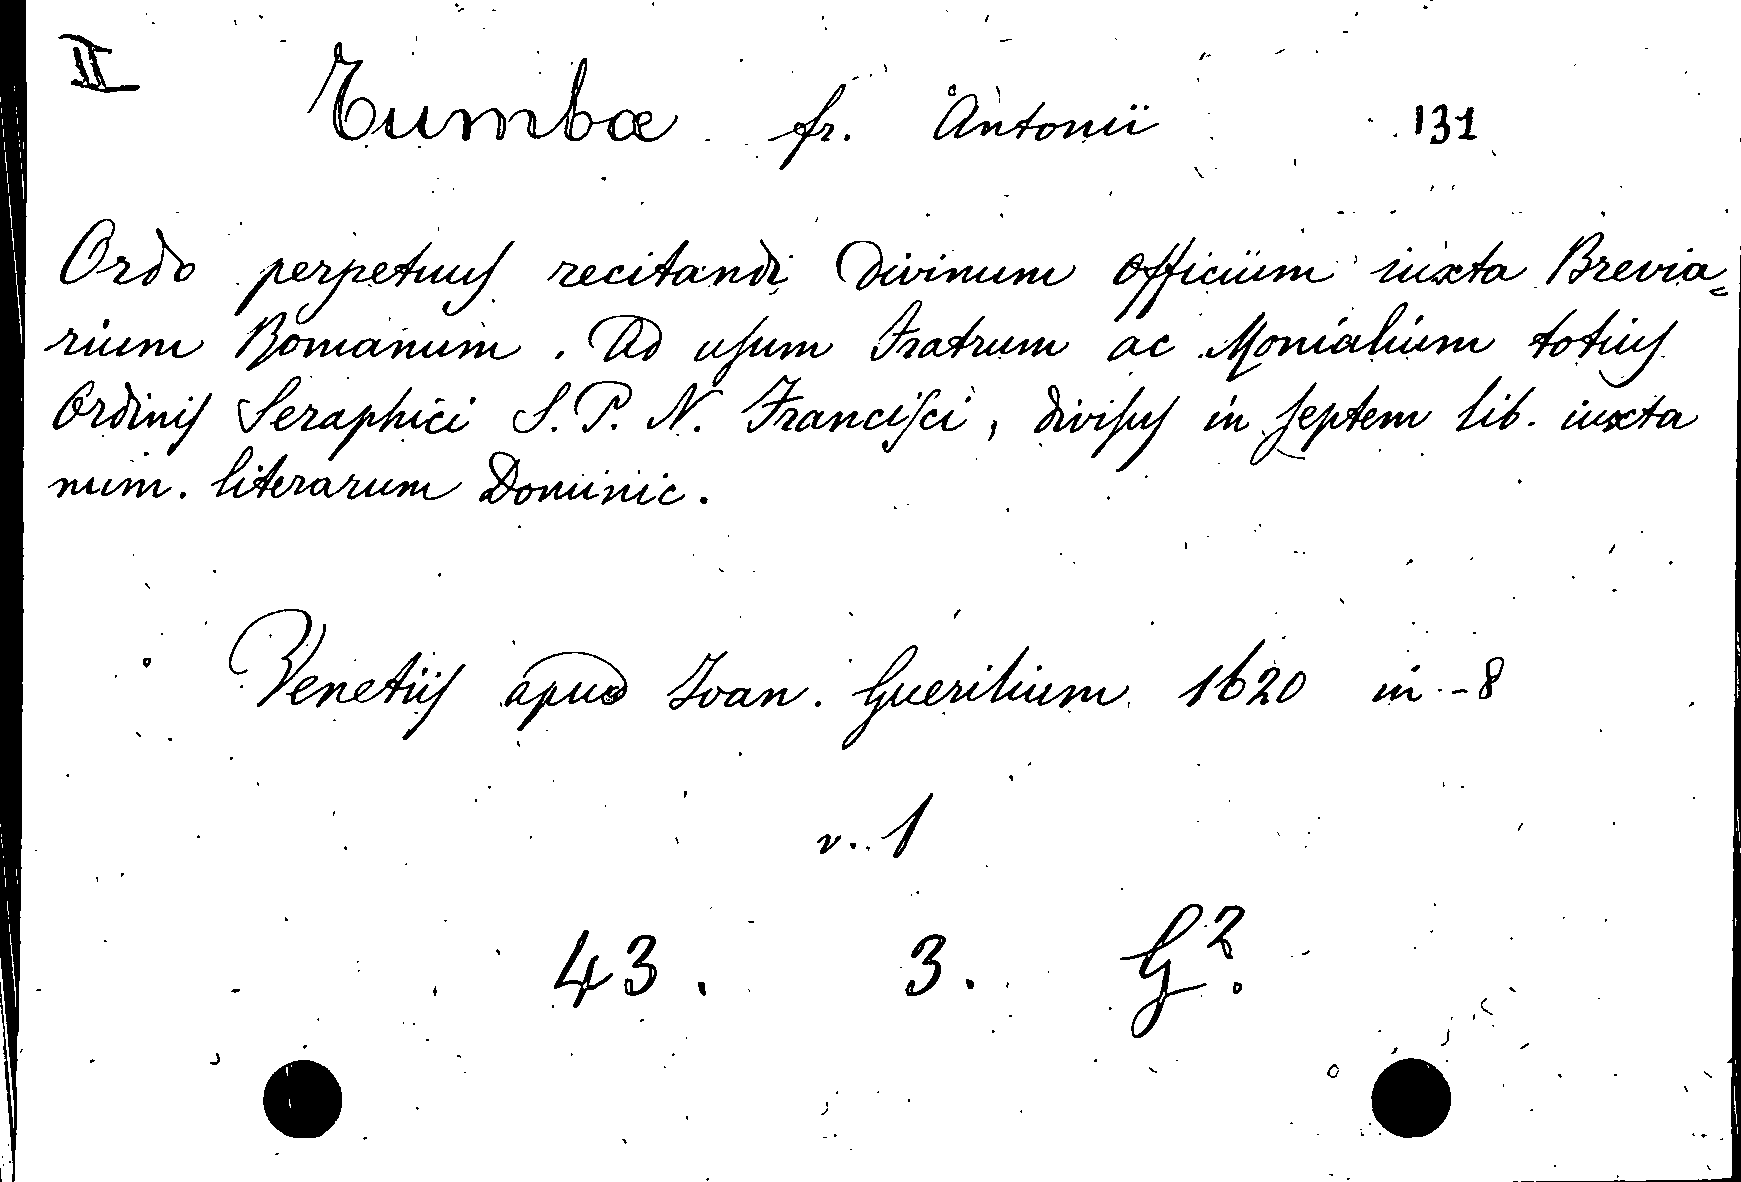 II
Tumbæ fr. Antonii 131
Ordo perpetuus recitandi Divinum Officium iuxta Brevia=
rium Romanum. Ad usum Fratrum ac Monialium totius
Ordinis Seraphici S. P. N. Francisci, divisus in septem lib. iuxta
num. literarum Dominic.
Venetiis apud Ioan. Guerilium 1620 in-8
v. 1
43. 3. G².